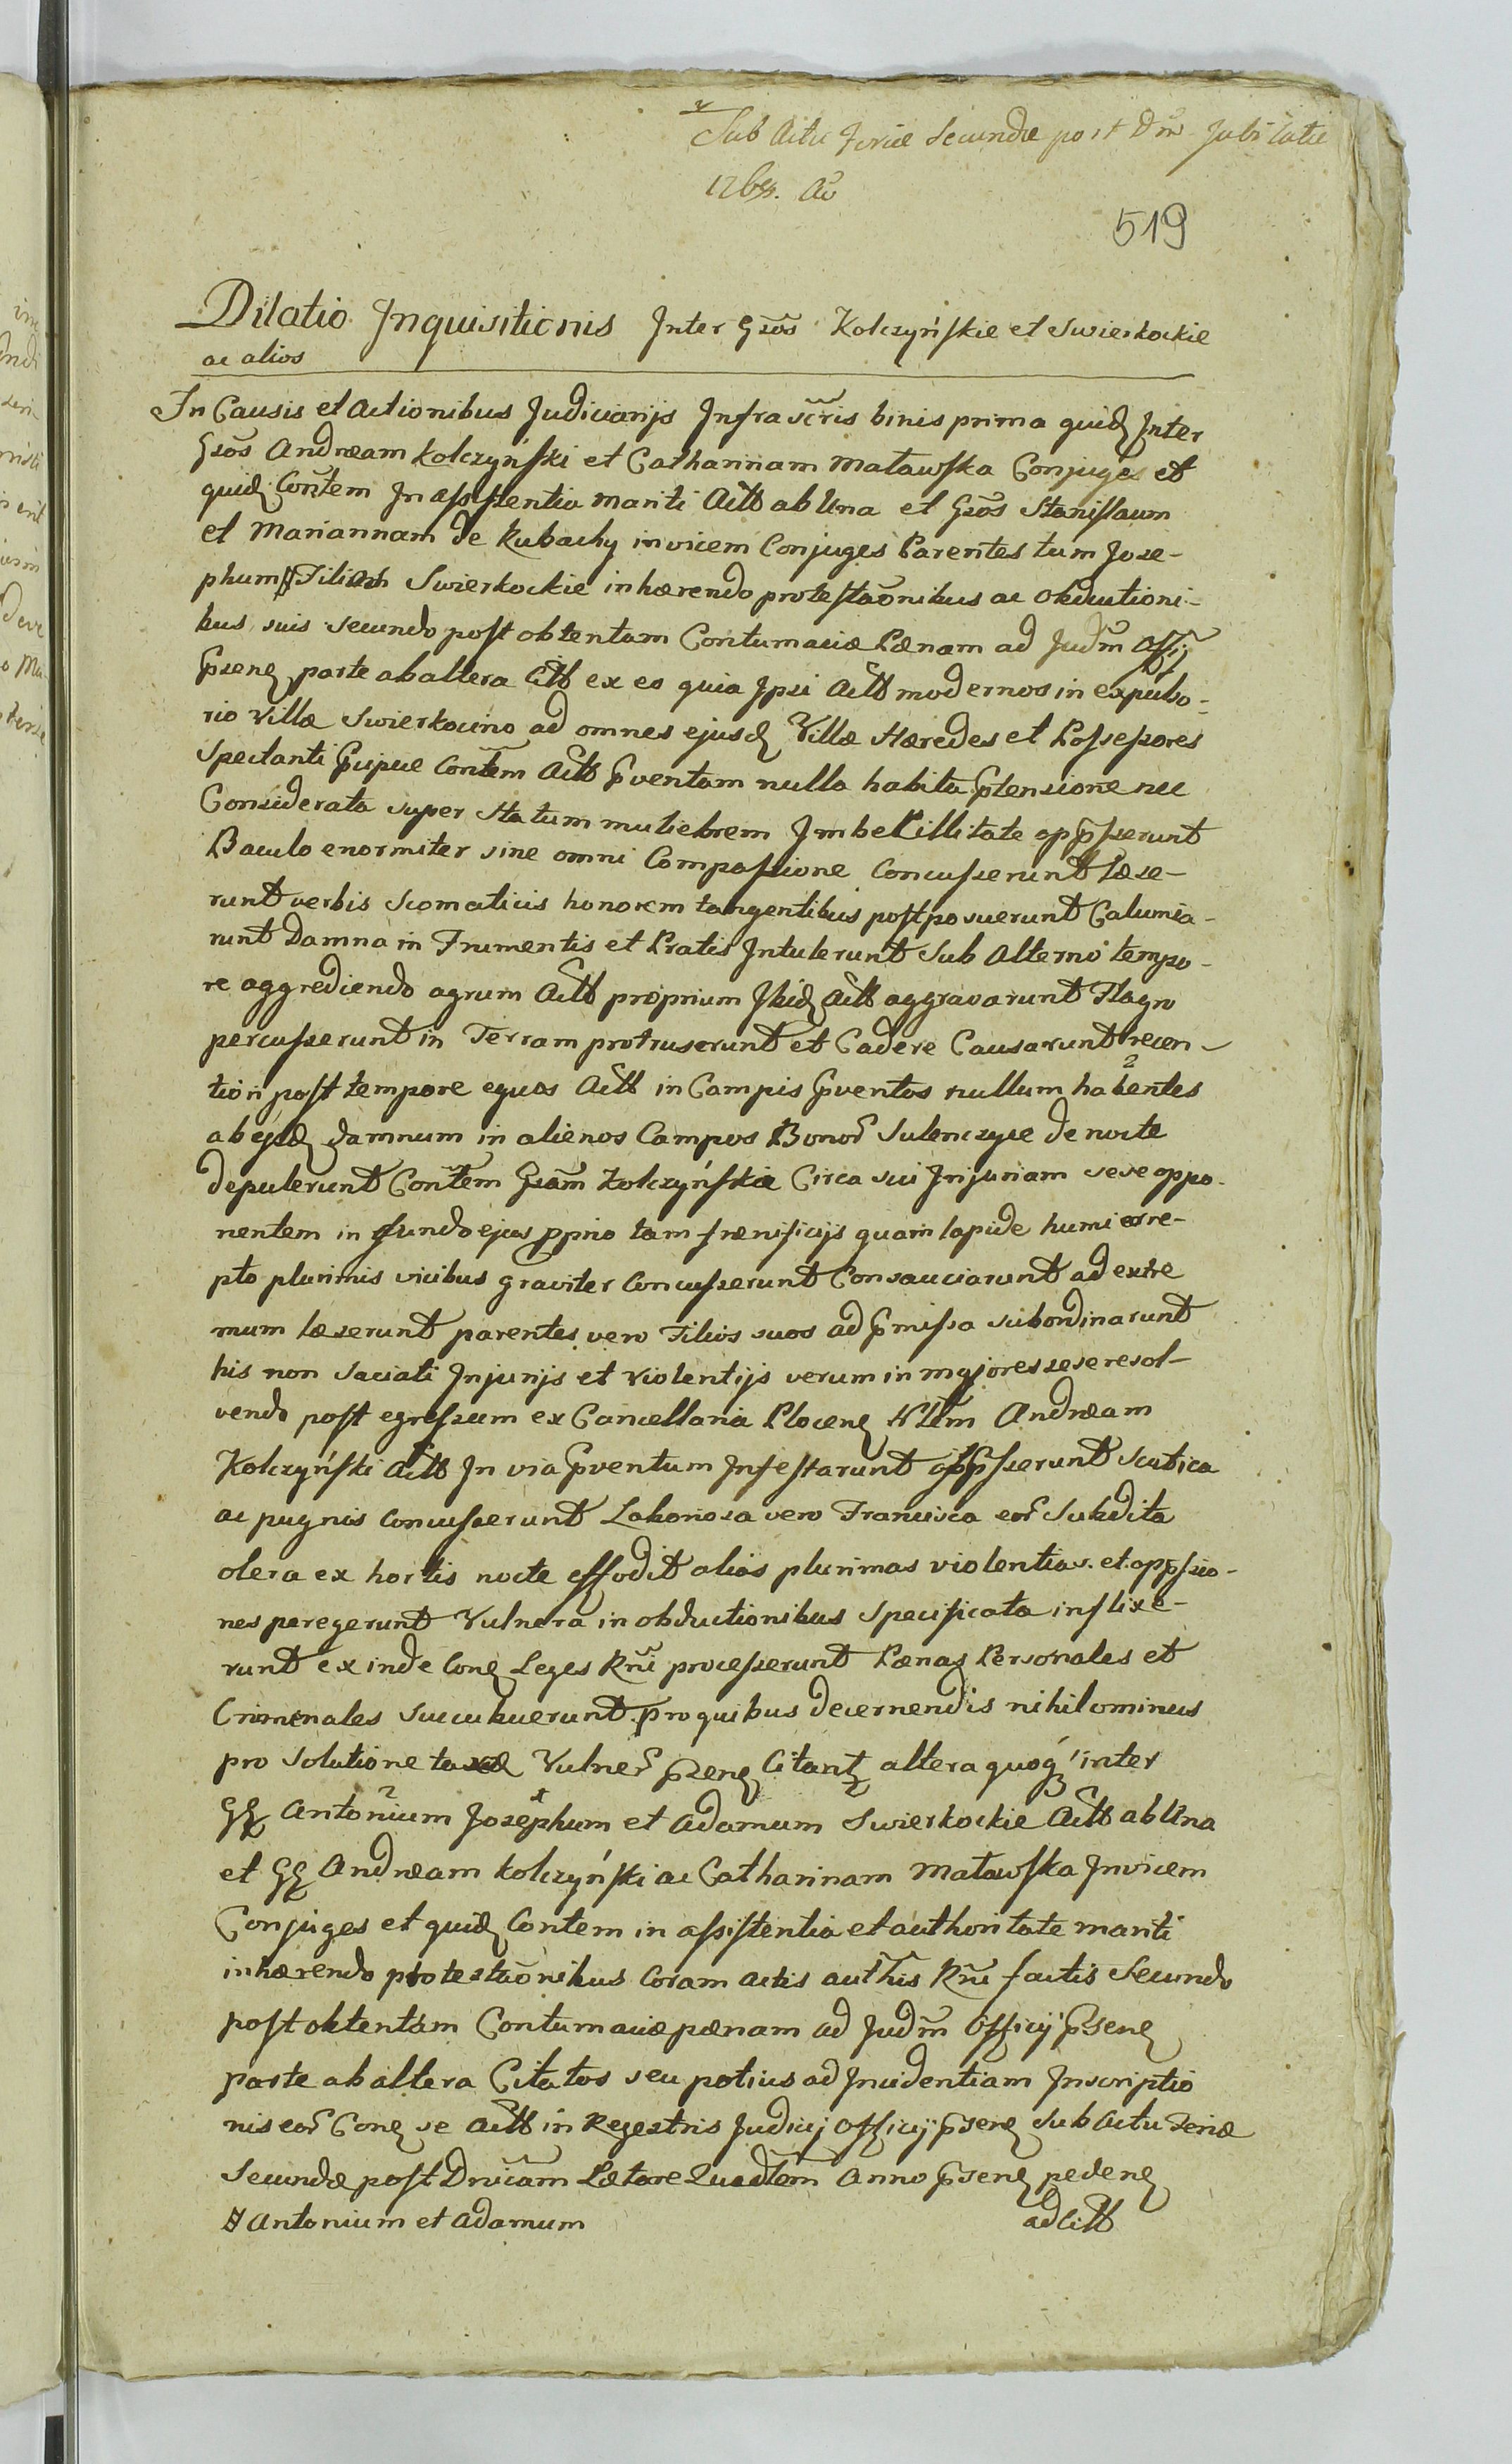 Sub Actu Feriæ Secundæ post Dnm Jubilate
519
Dilatio Inquisitionis Inter Gsos Kolczyńskie et Swierkockie
ac alios
In Causis et Actionibus Judiciarijs Infrascris binis prima quid Inter
Gsos Andræam Kolczyński et Catharinam Matawska Conjuges et
quid Contem In assistentia mariti Actt ab Una et Gsos Stanislaum
et Mariannam de Rubachy invicem Conjuges Parentes tum Jose-
phum # Filios Swierkockie inhærendo protestaonibus ac Obductioni-
bus suis secundo post obtentam Contumaciæ Pænam ad Judm Offij
Psens parte ab altera Citt ex eo quia Ipsi Actt modernos in expulso-
rio Villæ Swierkocino ad omnes ejusd Villæ Hæredes et Possessores
Spectanti Pcipue Contem Actt Pventam nulla habita Ptensione nec
Considerata super Statum muliebrem Imbecillitate oppsserunt
Baculo enormiter sine omni Compassione Concusserunt Læse-
runt verbis Scomaticis honorem tangentibus postposuerunt Calumnia-
runt Damna in Frumentis et Pratis Intulerunt Sub Alterno tempo-
re aggrediendo agrum Actt proprium Ibid Actt aggravarunt Flagro
percusserunt in Terram protruserunt et Cadere Causarunt recen-
tiori post tempore equos Actt in Campis Pventos nullum habentes
ab ejsd damnum in alienos Campos Bonor Sulenczyce de nocte
depulerunt Contem Gsam Kolczyńska Circa sui Injuriam sese oppo-
nentem in fundo ejus pprio tam frænificijs quam lapide humi erre-
pto plurimis vicibus graviter Concusserunt Consauciarunt ad extre
mum læserunt parentes vero Filios suos ad Pmissa subordinarunt
his non Saciati Injurijs et Violentijs verum in majores sese resol-
vendo post egressum ex Cancellaria Plocens Nlem Andræam
Kolczyński Actt In via Pventum Infestarunt oppsserunt Scutica
ac pugnis Concusserunt Laboriosa vero Francisca eor Subdita
olera ex hortis nocte effodit alias plurimas violentias et oppssio-
nes peregerunt Vulnera in obductionibus Specificata inflixe-
runt ex inde Cons Leges Rni processerunt Pænas Personales et
Criminales Succubuerunt. pro quibus decernendis nihilominus
pro Solutione taxæ Vulner Psens Citant altera quoq inter
GG Antonium Josephum et Adamum Swierkockie Actt ab Una
et GG Andræam Kolczyński ac Catharinam Matawska Invicem
Conjuges et quid Contem in assistentia et authoritate mariti
inhærendo protestaonibus Coram actis authis Rni factis Secundo
post obtentam Contumaciæ pænam ad Judm Officij Psens
parte ab altera Citatos seu potius ad Incidentiam Inscriptio
nis eor Cons se Actt in Regestris Judicij Officij Psens Sub Actu Feriæ
Secundæ post Dnicam Lætare Quadlem Anno Psens pedens
# Antonium et Adamum
ad Citt